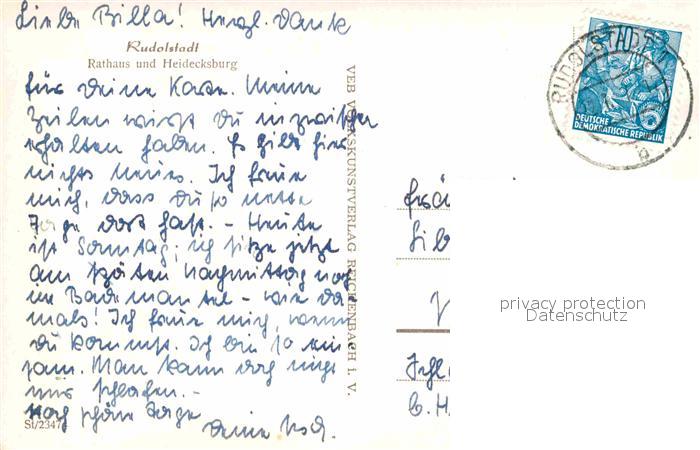 Liebe Billa! Herzl. Dank
Rudolstadt
Rathaus und Heidecksburg
für Deine Karte. Meine
Zeilen wirst Du inzwischen
erhalten haben. Es gibt hier
nichts Neues. Ich freue
mich, dass Du so nette
Tage dort hast. - Heute
ist Sonntag; ich sitze jetzt
am späten Nachmittag noch
im Bademantel - wie da-
mals! Ich freue mich, wenn
Du kommst. Ich bin so ein-
sam. Man kann doch nicht
nur schlafen. -
Noch schöne Tage
Deine
St/2347
VEB VOLKSKUNSTVERLAG REICHENBACH I. V.
RUDOLSTADT 1
b
DEUTSCHE
DEMOKRATISCHE REPUBLIK
Frä
privacy protection
Datenschutz